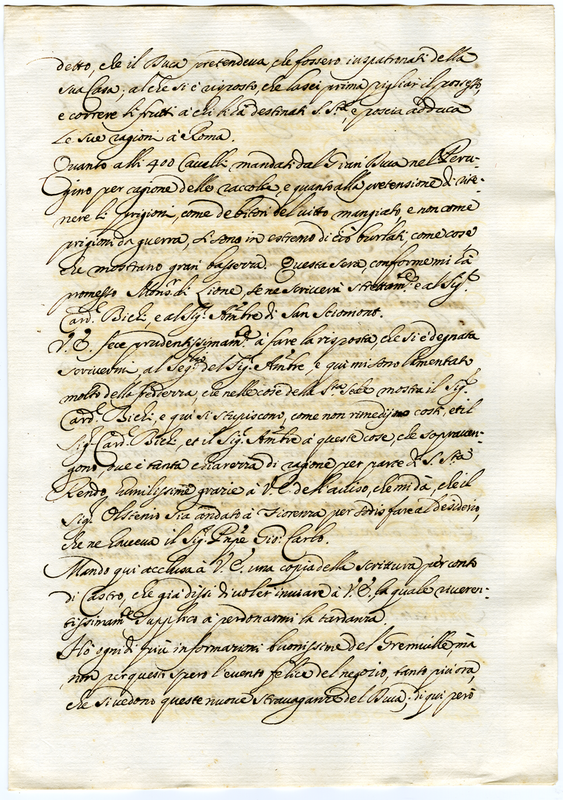 detto, che il Duca pretendeva, che fossero iuspatronati della
sua Casa; al che si è risposto, che lasci prima pigliar il possesso,
e correre li frutti à chi li hà destinati S. S.tà, e poscia adduca
le sue ragioni à Roma.
Quanto alli 400 Cavalli mandati dal Gran Duca nel Peru-
gino per cagione delle raccolte, e quanto alla pretensione di rite-
nere li prigioni, come debitori del vitto mangiato, e non come
prigioni da guerra, si sono in estremo di ciò burlati; come cose
che mostrano gran bassezza. Questa sera conforme mi hà
promesso Mons.r di Lione se ne scriverà strettam.te e al Sig.r
Card.l Bichi, e al Sig.r Amb.re di San Sciomont.
V. E. fece prudentissimam.te à fare la risposta, che si è degnata
scrivermi, al Seg.rio del Sig.r Amb.re, e qui mi sono lamentato
molto della che nelle cose della S.ta Sede mostra il Sig.r
Card.l Bichi, e qui si stupiscono, come non rimedino costì, et il
Sig.r Card.l Bichi, et il Sig.r Amb.re à queste cose, che sopraven-
gono, ove è tanta chiarezza di ragione per parte di S. S.tà
Rendo humilissime grazie à V. E. dell'aviso, che mi dà, che il
Sig.r sia andato à Fiorenza per sodisfare al desiderio,
che ne haveva il Sig.r Pnpe Gio: Carlo.
Mando qui acclusa à V. E. una copia della scrittura per conto
di Castro, che già dissi di voler inviare à V. E., la quale riveren-
tissimam.te supplico à perdonarmi la tardanza.
Hò ogni dì più informazioni buonissime del Gremuille, mà
non per questo spero l'evento felice del negozio, tanto più ora,
che si vedono queste nuove stravaganze del Duca; di qui però